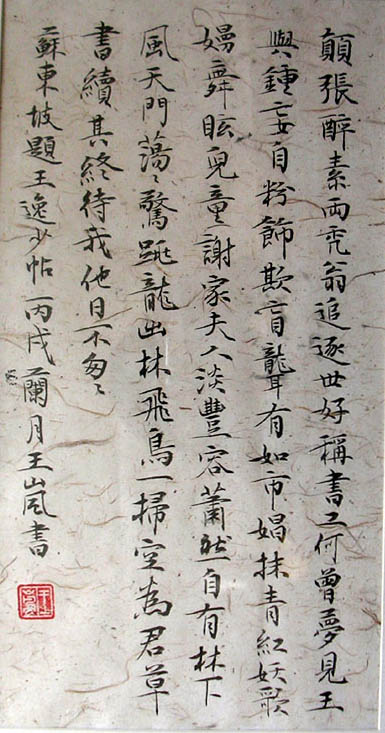 顛張醉素兩禿翁追逐世好稱書工何曾夢見王
與鍾妄自粉飾欺盲聾有如市娼抹青紅妖歌
嫚舞眩兒童謝家夫人淡豐容蕭然自有林下
風天門蕩蕩驚跳龍出林飛鳥一掃空為君草
書續其終待我他日不匆匆
蘇東坡題王逸少帖丙戌蘭月王嵐書